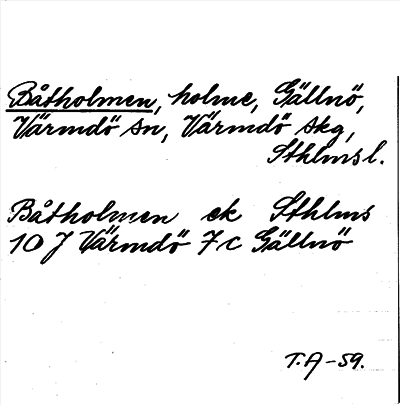 Båtholmen, holme, Gällnö,
Värmdö sn, Värmdö skg,
Sthlms l.
Båtholmen ek Sthlms
10 J Värmdö 7 c Gällnö
T.A-59.